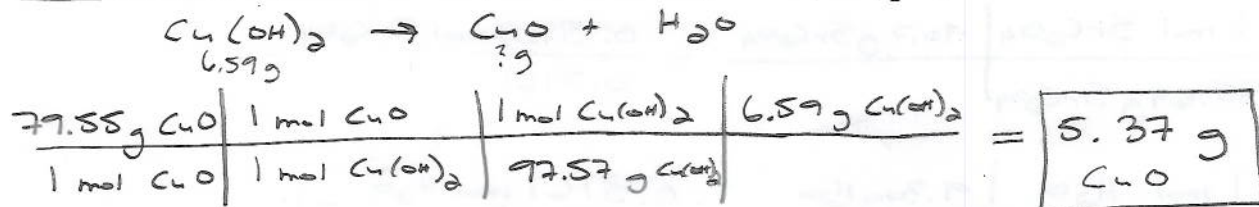 Cu(OH)₂ → CuO + H₂O
6.59g ?g
79.55g CuO | 1 mol CuO | 1 mol Cu(OH)₂ | 6.59g Cu(OH)₂ = 5.37 g
1 mol CuO | 1 mol Cu(OH)₂ | 97.57g Cu(OH)₂ CuO